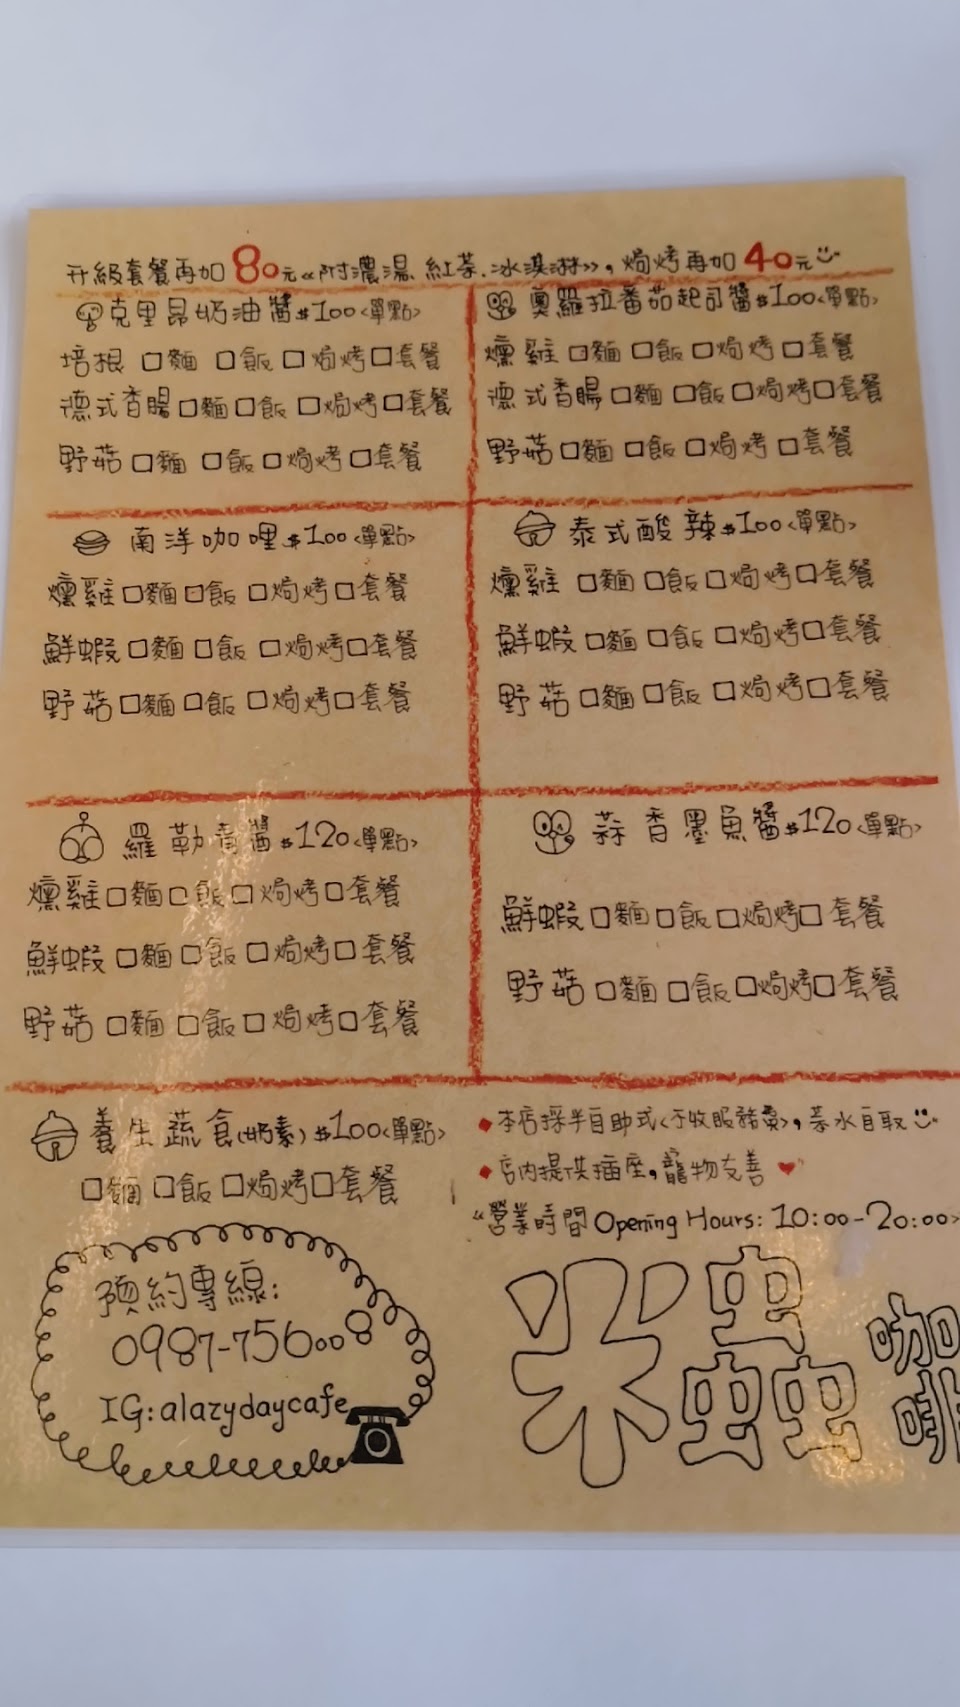 升級套餐再加80元《附濃湯.紅茶.冰淇淋》，焗烤再加40元
克里昂奶油醬$100<單點>
培根 □麵 □飯 □焗烤 □套餐
德式香腸 □麵 □飯 □焗烤 □套餐
野菇 □麵 □飯 □焗烤 □套餐
奧羅拉番茄起司醬$100<單點>
燻雞 □麵 □飯 □焗烤 □套餐
德式香腸 □麵 □飯 □焗烤 □套餐
野菇 □麵 □飯 □焗烤 □套餐
南洋咖哩$100<單點>
燻雞 □麵 □飯 □焗烤 □套餐
鮮蝦 □麵 □飯 □焗烤 □套餐
野菇 □麵 □飯 □焗烤 □套餐
泰式酸辣$100<單點>
燻雞 □麵 □飯 □焗烤 □套餐
鮮蝦 □麵 □飯 □焗烤 □套餐
野菇 □麵 □飯 □焗烤 □套餐
羅勒青醬$120<單點>
燻雞 □麵 □飯 □焗烤 □套餐
鮮蝦 □麵 □飯 □焗烤 □套餐
野菇 □麵 □飯 □焗烤 □套餐
蒜香墨魚醬$120<單點>
鮮蝦 □麵 □飯 □焗烤 □套餐
野菇 □麵 □飯 □焗烤 □套餐
養生蔬食(奶素)$100<單點>
□麵 □飯 □焗烤 □套餐
預約專線:
0987-756008
IG:alazydaycafe
◆本店採半自助式<不收服務費>，茶水自取
◆店內提供插座，寵物友善
《營業時間 Opening Hours: 10:00-20:00>
米蟲咖啡